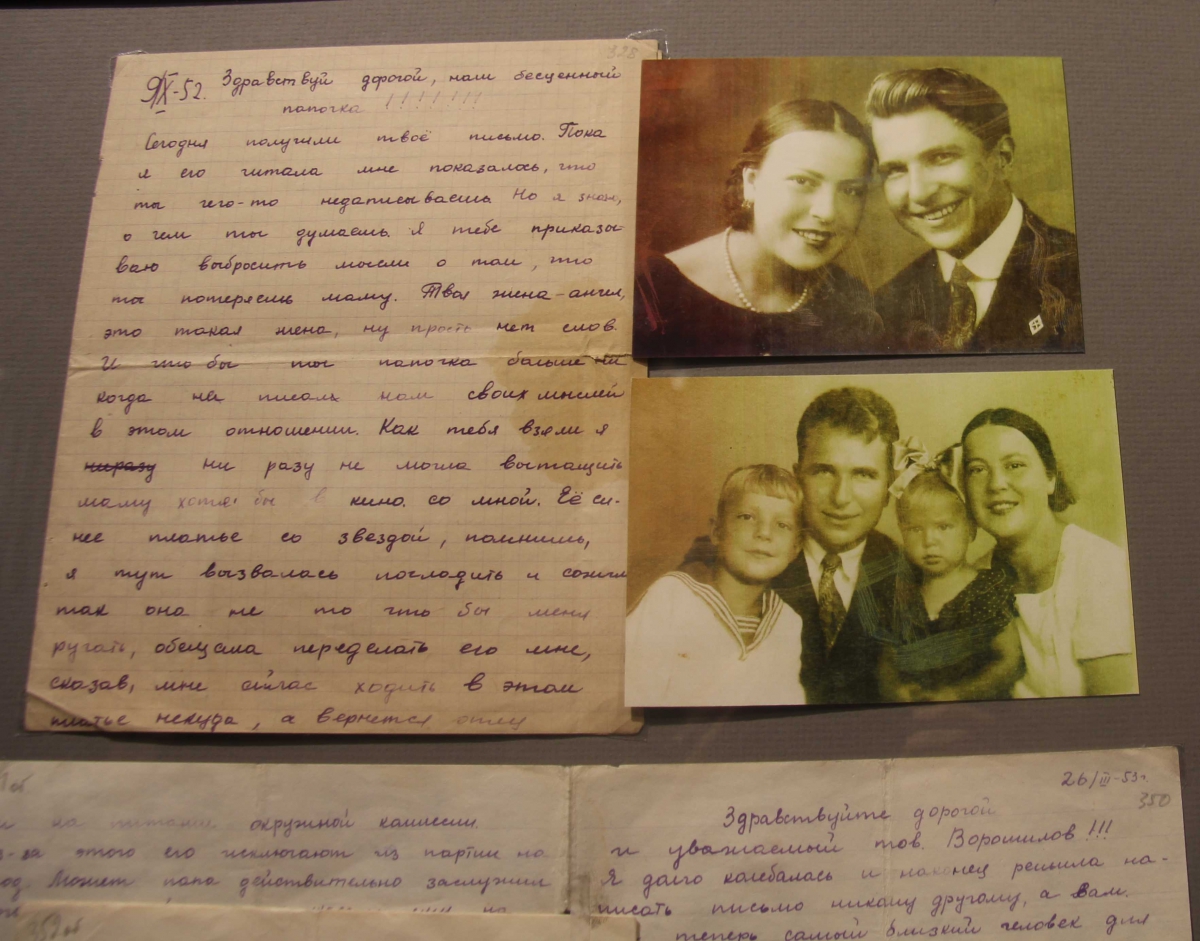 328
9/IX-52. Здравствуй дорогой, наш бесценный
папочка !!!!!!!
Сегодня получили твоё письмо. Пока
я его читала мне показалось, что
ты чего-то недаписываешь. Но я знаю,
о чем ты думаешь. Я тебе приказы-
ваю выбросить мысли о том, что
ты потеряешь маму. Твоя жена-ангел,
это такая жена, ну просто нет слов.
И что бы ты папочка больше ни
когда не писал нам своих мыслей
в этом отношении. Как тебя взяли я
ниразу ни разу не могла вытащить
маму хотя бы в кино со мной. Её си-
нее платье со звездой, помнишь,
я тут вызвалась погладить и сожгла
так она не то что бы меня
ругать, обещала переделать его мне,
сказав, мне сейчас ходить в этом
платье некуда, а вернется отец
об
на питании окружной комиссии.
з-за этого его исключают из партии на
од. Может папа действительно заслужил
на
352об
26/III-53г.
350
Здравствуйте дорогой
и уважаемый тов. Ворошилов!!!
Я долго колебалась и наконец решила на-
писать письмо никому другому, а Вам.
теперь самый близкий человек для